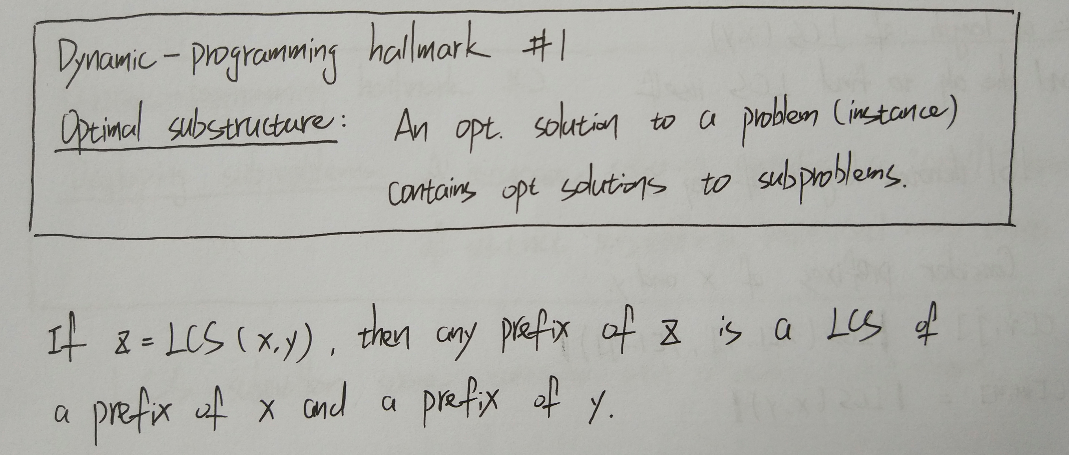 Dynamic-programming hallmark #1
Optimal substructure: An opt. solution to a problem (instance)
contains opt solutions to subproblems.
If z = LCS (x,y), then any prefix of z is a LCS of
a prefix of x and a prefix of y.